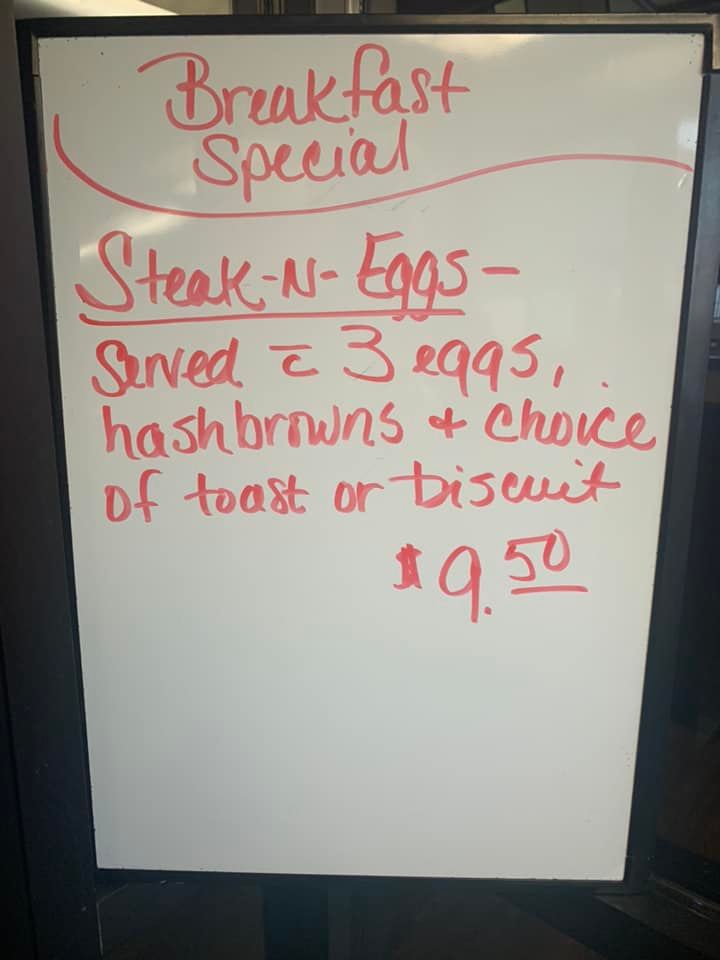 Breakfast
Special
Steak-N-Eggs-
Served c̄ 3 eggs,
hashbrowns + choice
of toast or biscuit
$9.50